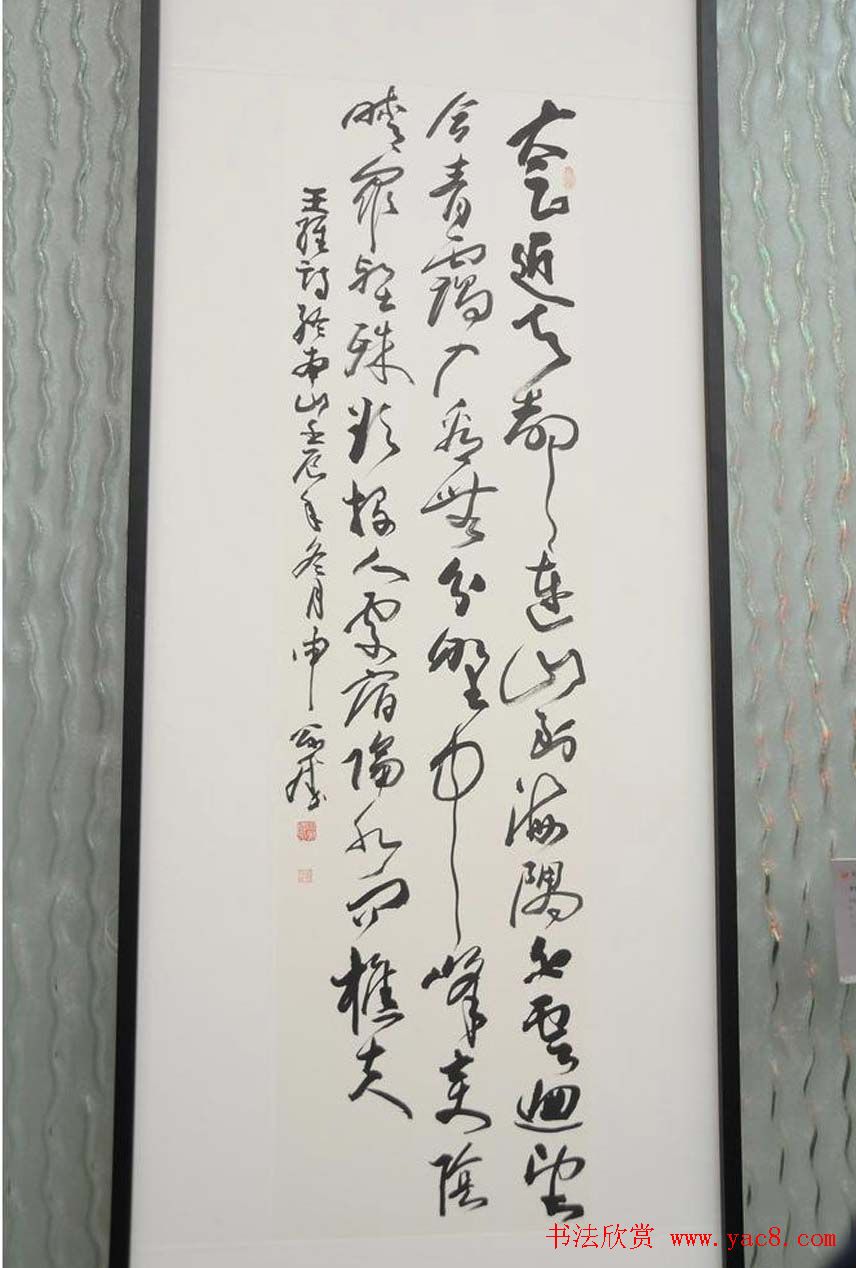 太乙近天都連山到海隅白雲迴望
合青靄入看無分野中峰變陰
晴衆壑殊欲投人處宿隔水問樵夫
王維詩終南山壬辰年冬月申
书法欣赏 www.yac8.com